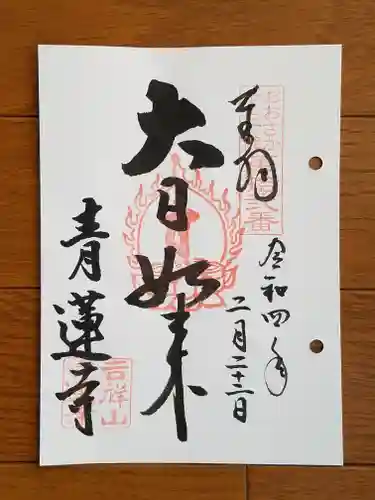 奉拝
令和四年
二月二十二日
大日如来
青蓮寺
吉祥山